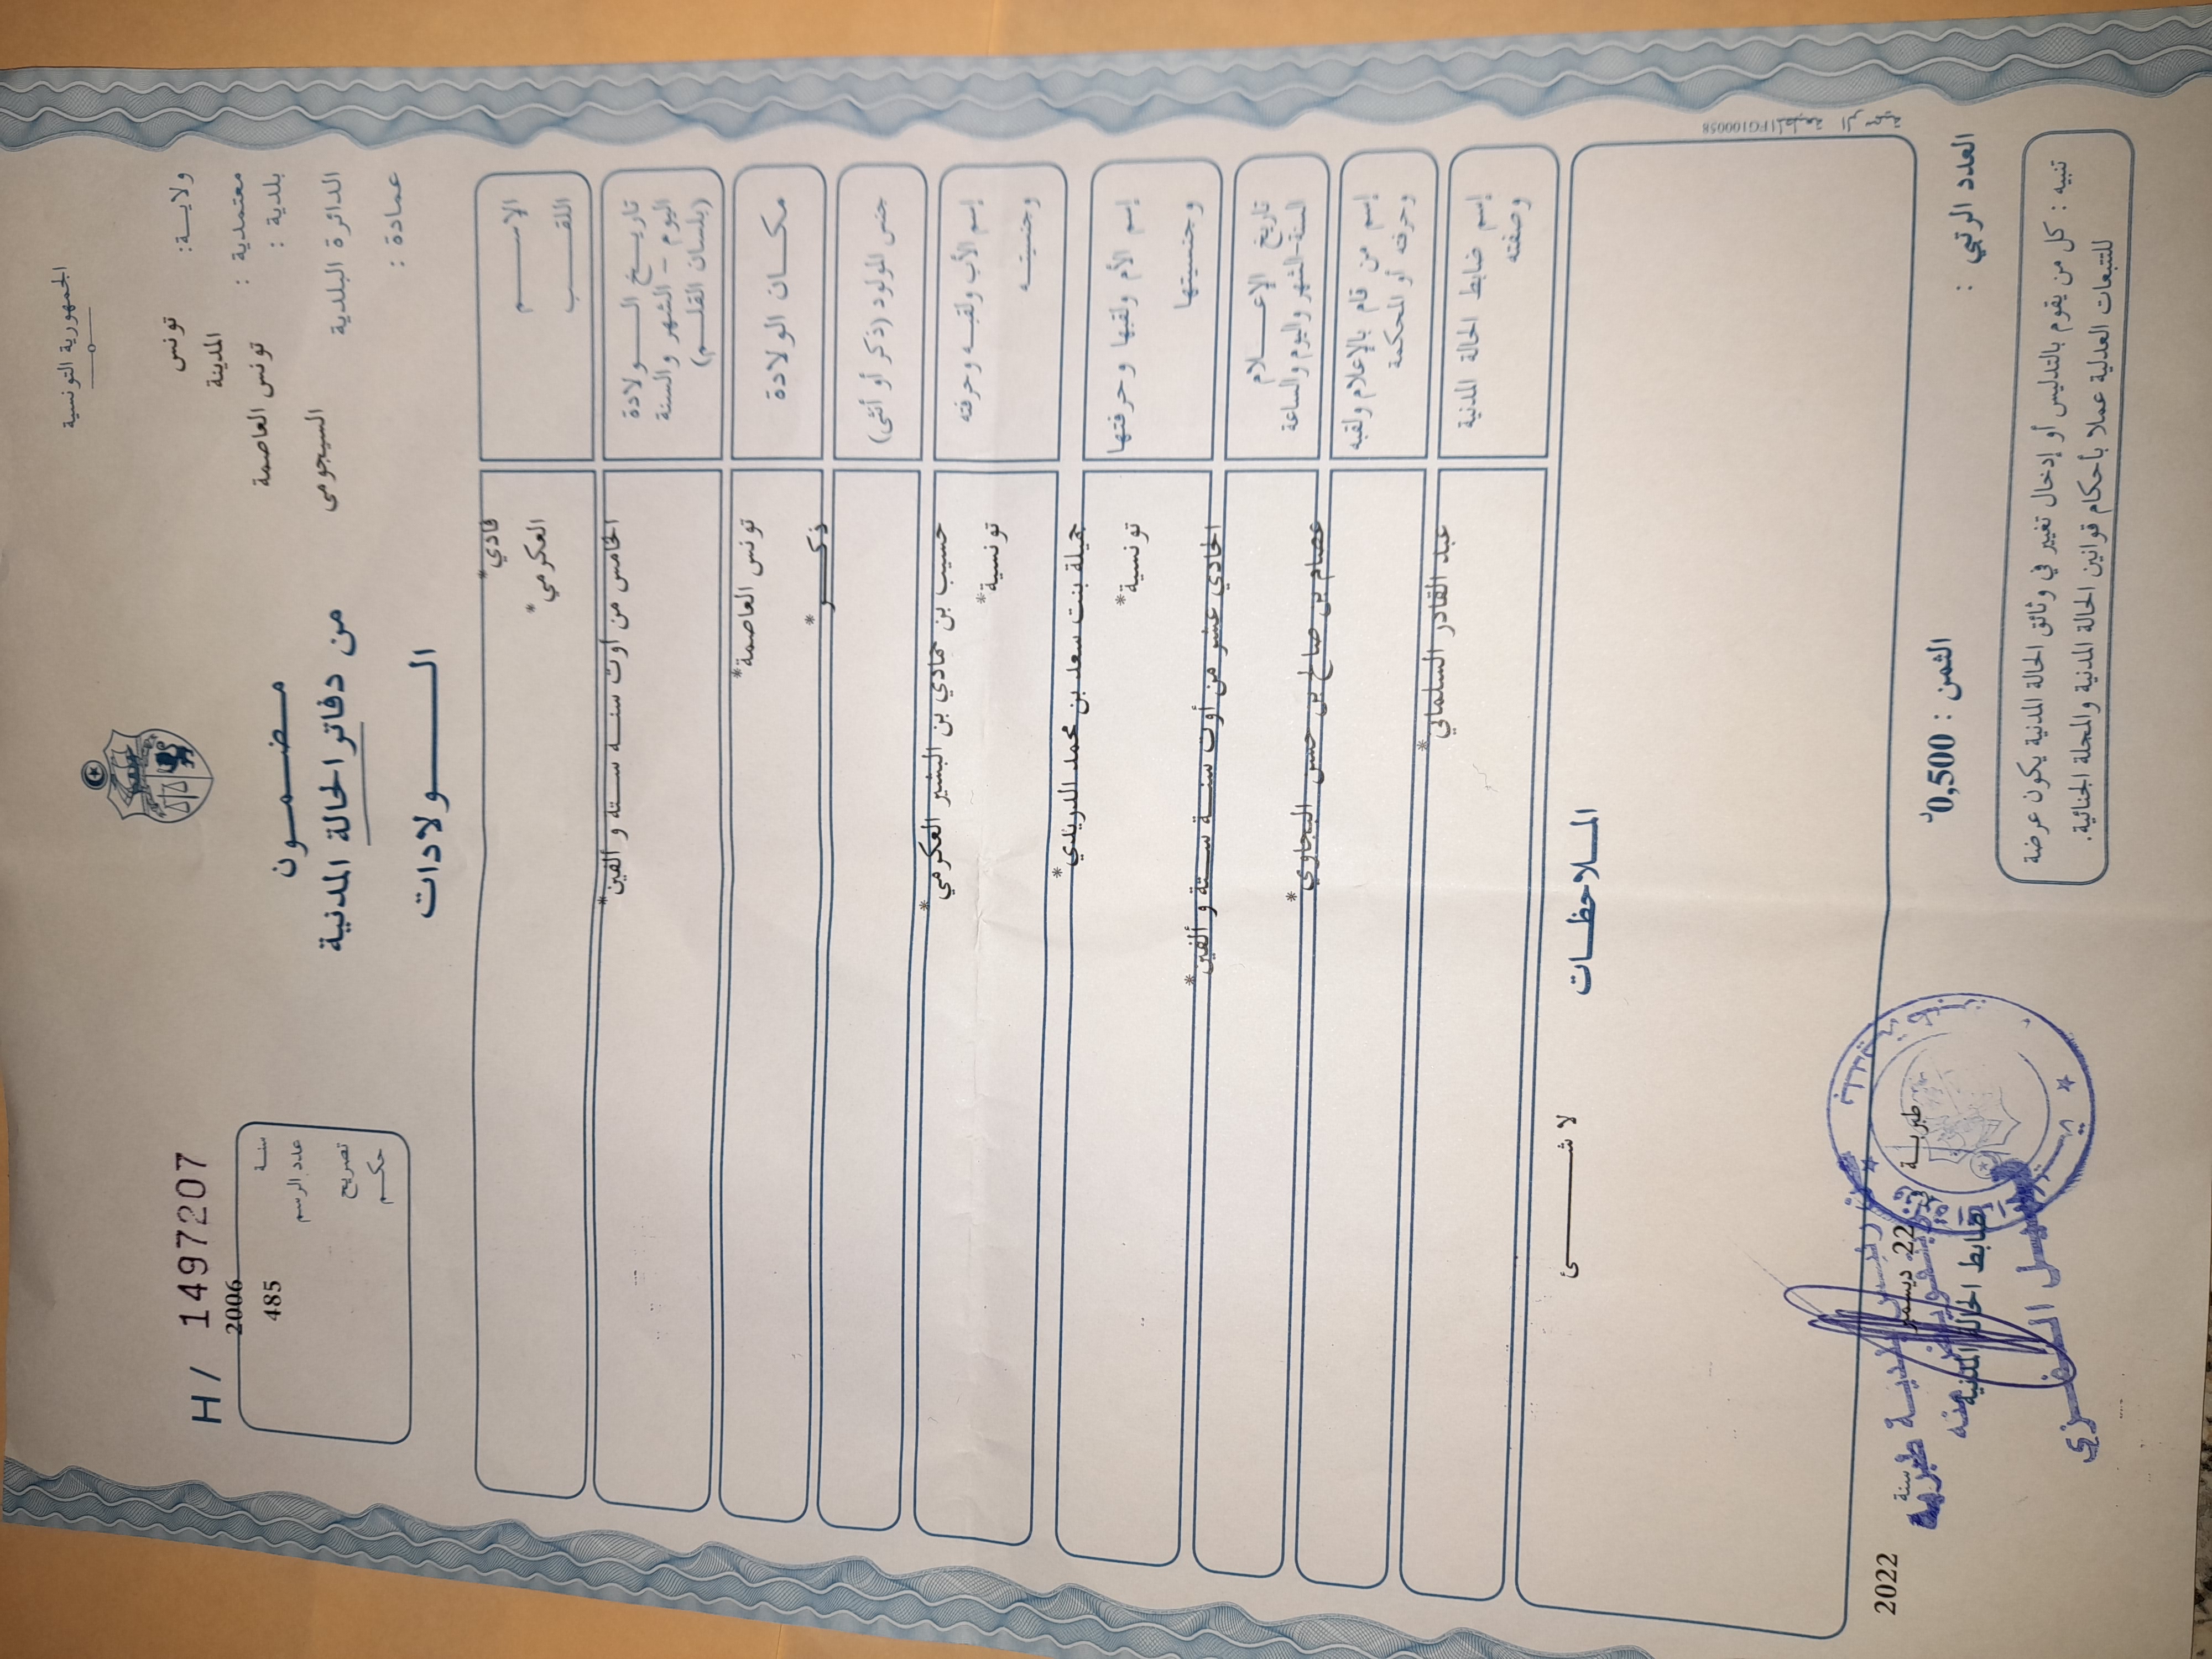 الجمهورية التونسية
ولايـــة: تونس
معتمدية : المدينة
بلدية : تونس العاصمة
الدائرة البلدية السيجومي
عمادة :
H/ 1497207
سنـة 2006
عدد الرسم 485
تصريح
حكـم
مـضـمـون
من دفاتر الحالة المدنية
الـــولادات
الاســـم فادي*
اللقـــب العكرمي*
تاريــخ الــولادة
اليوم – الشهر والسنة
(بلسان القلــم)
الخامس من اوت سنـة ستة و ألفين*
مكـــان الولادة تونس العاصمة*
جنس المولود (ذكر أو أنثى) ذكـــر*
إسم الأب ولقبـه وحرفته
وجنسيتـه
حسيب بن حمادي بن البشير العكرمي*
تونسية*
إسم الأم ولقبها وحرفتها
وجنسيتها
جميلة بنت سعد بن محمد الدريدي*
تونسية*
تاريخ الإعـــلام
السنة-الشهر واليوم والساعة
الحادي عشر من أوت سنـة ستة و ألفين*
إسم من قام بالإعلام ولقبه
وحرفته أو المحكمة
عصام بن صالح بن حسن البجاوي*
إسم ضابط الحالة المدنية
وصفته
عبد القادر السلماني*
المـلاحظـات
لا شـــــئ
المطبعة الرسمية FG100058
العدد الرتبي :
الثمن : 0,500د
طبربـة في 22 ديسمبر سنة 2022
ضابط الحالة المدنية
تنبيه : كل من يقوم بالتدليس أو إدخال تغيير في وثائق الحالة المدنية يكون عرضة
للتتبعات العدلية عملا بأحكام قوانين الحالة المدنية والمجلة الجنائية.